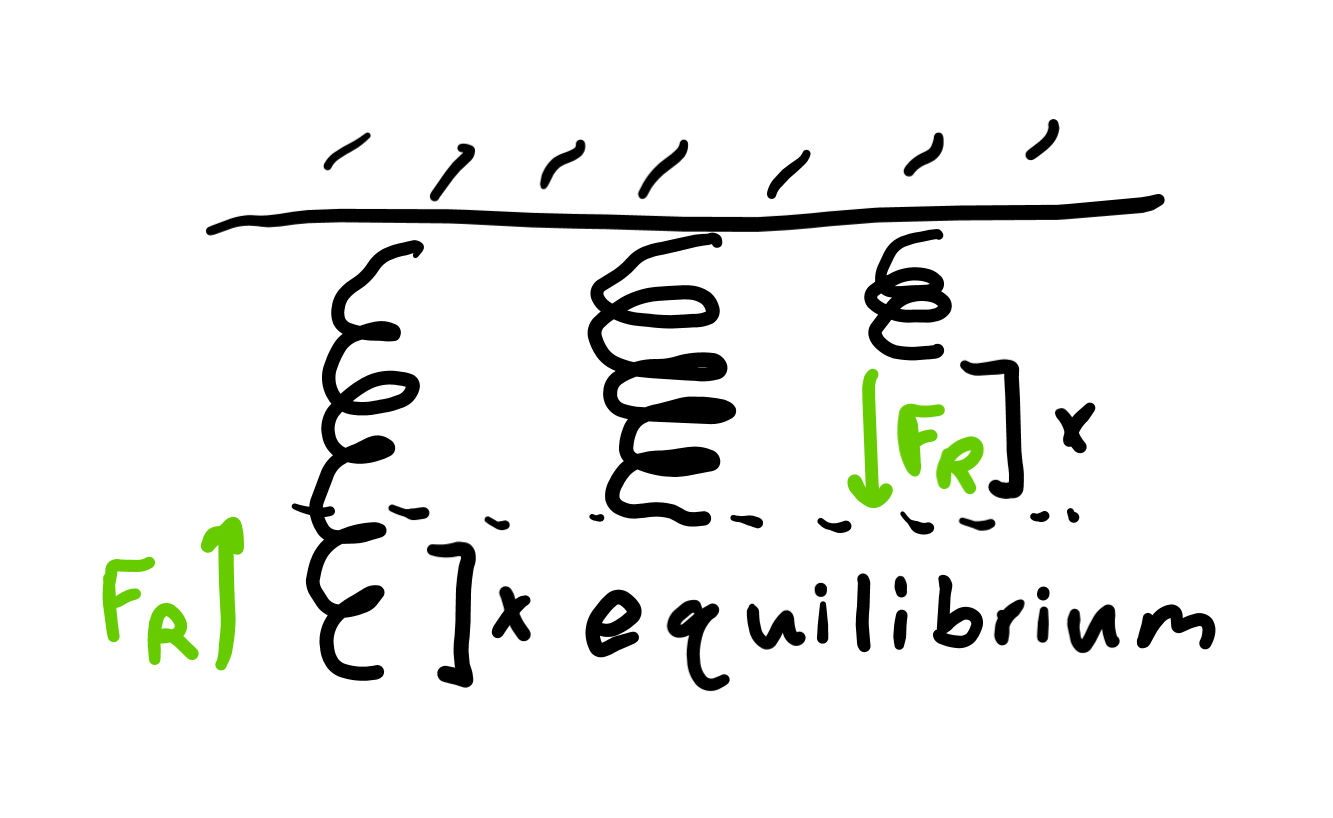 F_R x
F_R x equilibrium